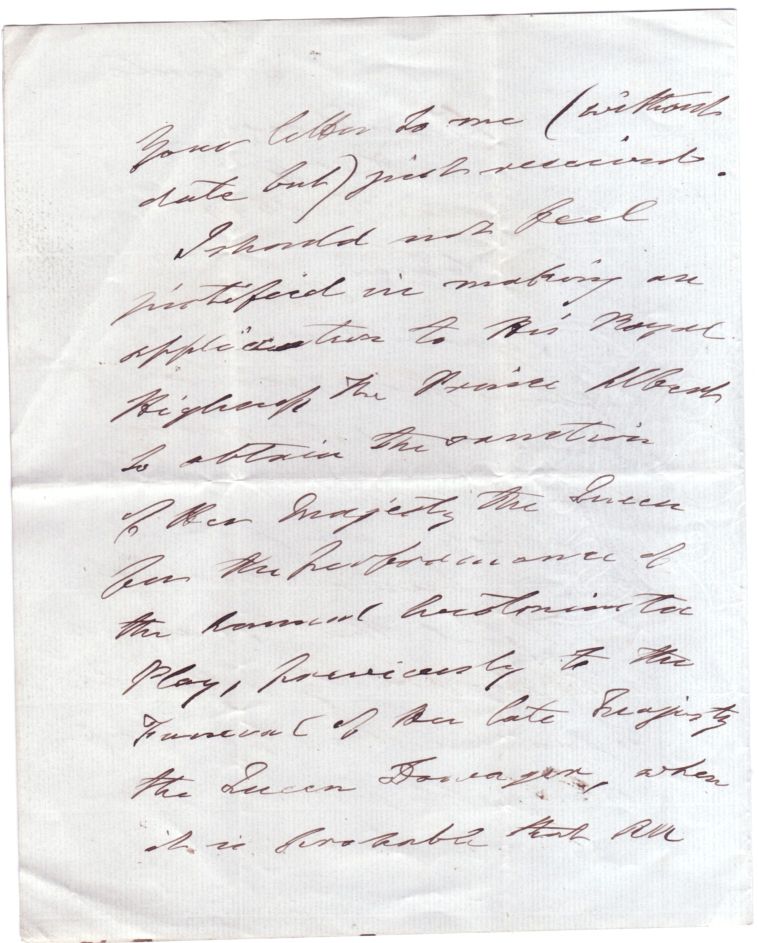 Your letter to me (without
date but) just received.
I should not feel
justified in making an
application to His Royal
Highness The Prince Albert
to obtain the sanction
of Her Majesty the Queen
for the performance of
the annual Westminster
Play, previously to the
Funeral of Her late Majesty
the Queen Dowager, when
it is probable that all